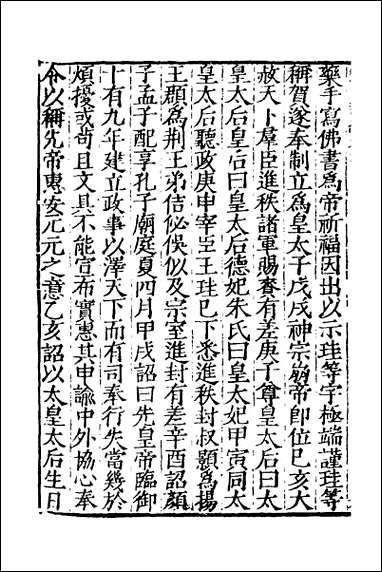 藥手寫佛書爲帝祈福因出以示珪等字極端謹珪等
稱賀遂奉制立爲皇太子戊戌神宗崩帝即位巳亥大
赦天下羣臣進秩諸軍賜賚有差庚子尊皇太后曰太
皇太后皇后曰皇太后德妃朱氏曰皇太妃甲寅同太
皇太后聽政庚申宰臣王珪巳下悉進秩封叔顥爲揚
王頵爲荆王弟佶佖俁似及宗室進封有差辛酉詔顔
子孟子配享孔子廟庭夏四月甲戌詔曰先皇帝臨御
十有九年建立政事以澤天下而有司奉行失當幾於
煩擾或苟且文具不能宣布實惠其申諭中外協心奉
令以稱先帝惠安元元之意乙亥詔以太皇太后生日